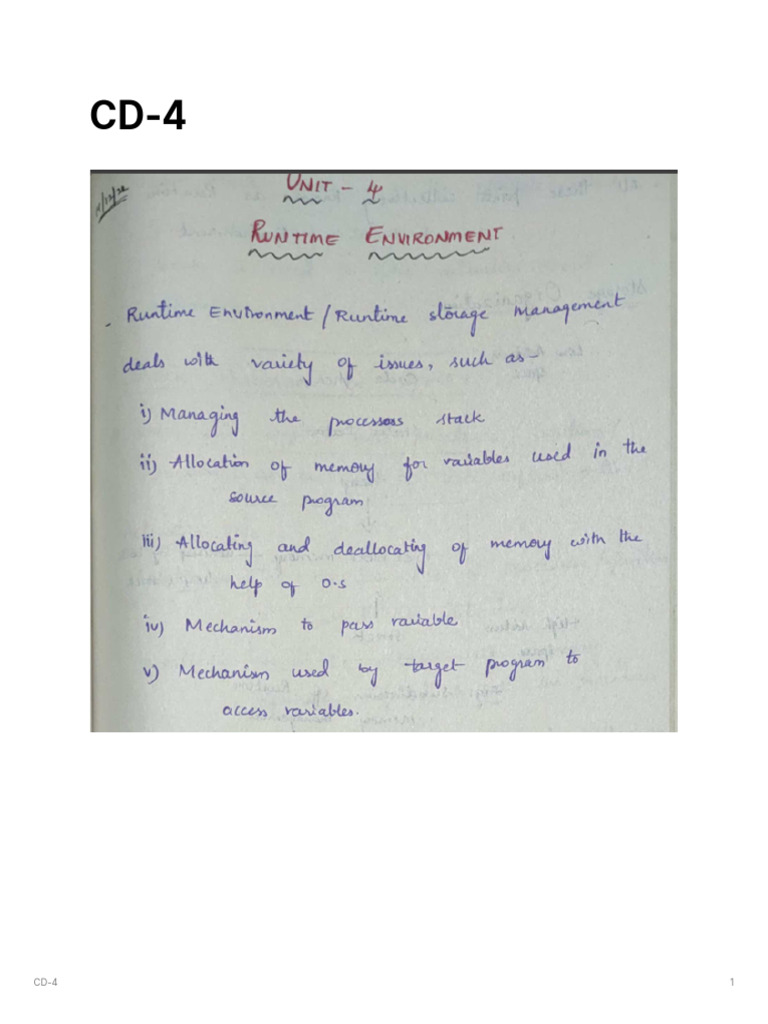 CD-4
UNIT - 4
RUNTIME ENVIRONMENT
- Runtime Environment / Runtime storage Management
deals with variety of issues, such as -
i) Managing the processors stack
ii) Allocation of memory for variables used in the
source program
iii) Allocating and deallocating of memory with the
help of O.S
iv) Mechanism to pass variable
v) Mechanism used by target program to
access variables.
CD-4
1